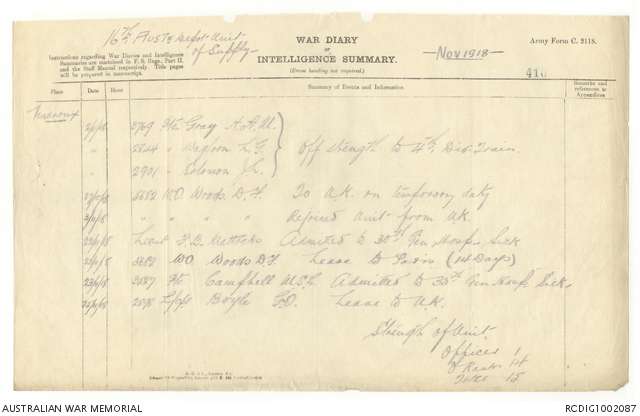 16th Aust Depot Unit
of Supply
WAR DIARY
or
INTELLIGENCE SUMMARY.
(Erase heading not required.)
Nov 1918
Army Form C. 2118.
Instructions regarding War Diaries and Intelligence
Summaries are contained in F. S. Regs., Part II.
and the Staff Manual respectively. Title pages
will be prepared in manuscript.
Place Date Hour Summary of Events and Information Remarks and references to Appendices
Pte Gray A.
" L. G. Off Strength to 4th Div: Train
2901 " Solomon
5682 W.O. Woods D. F. To U.K. on temporary duty
" " " " Rejoined Unit from U.K.
Lieut F. B. Admitted to 30th Gen Hosp. Sick
5682 W.O. Woods D. F. Leave to Paris (14 Days)
Pte Campbell Admitted to 30th Gen Hosp Sick.
L/Cpl Boyle Leave to U.K.
Strength of Unit
Officers 1
O Ranks 14
15
AUSTRALIAN WAR MEMORIAL
RCDIG1002087